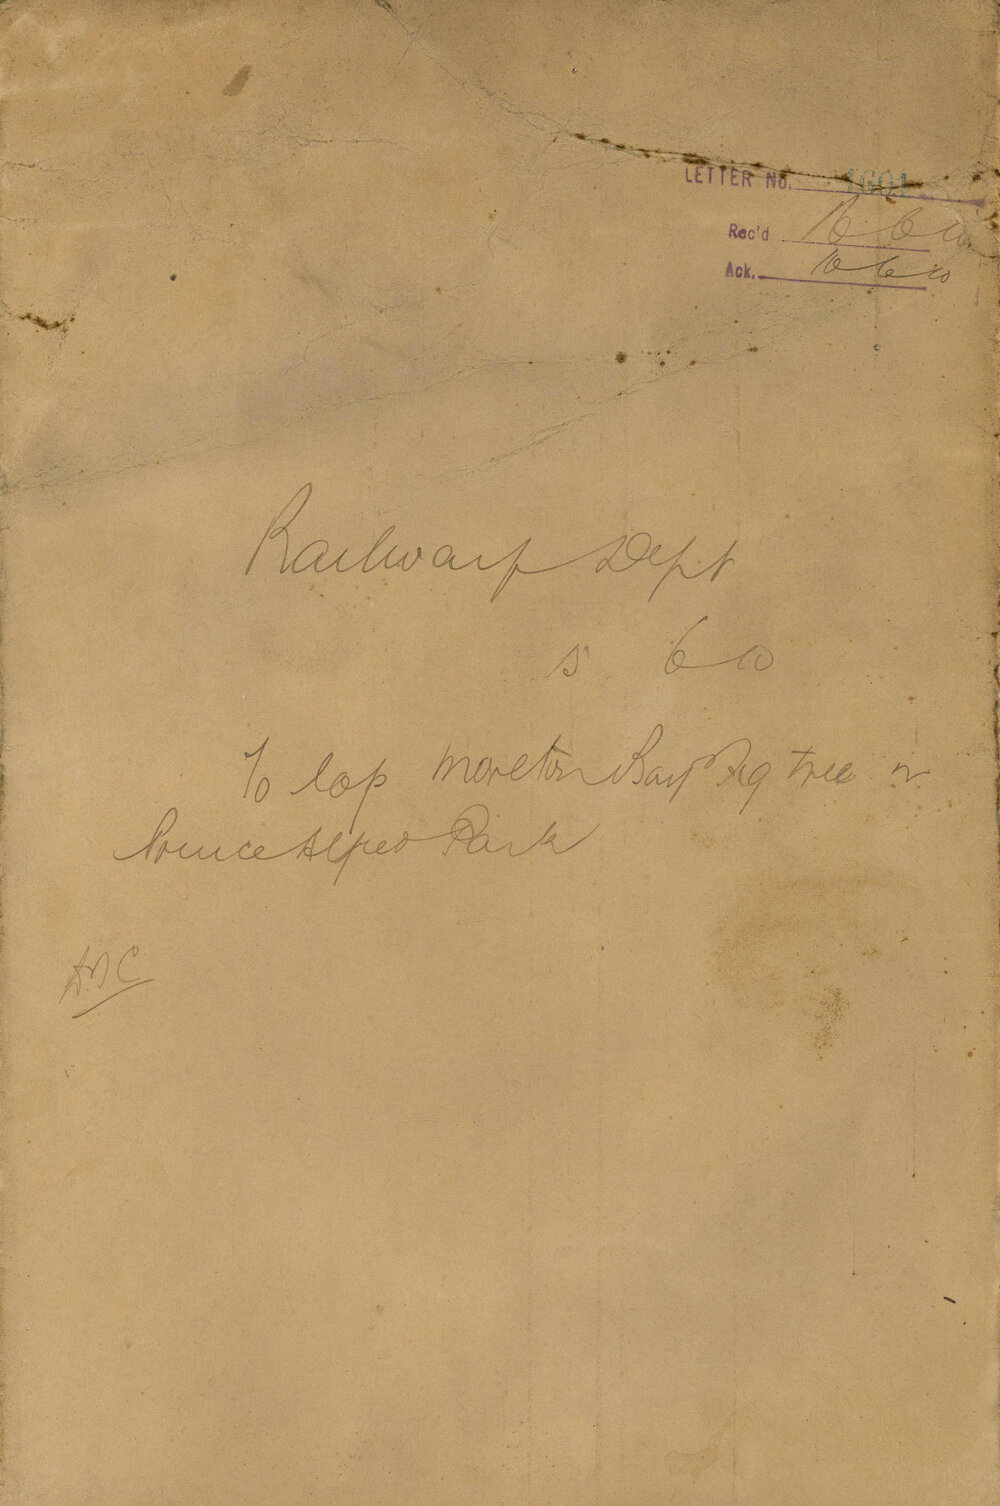 LETTER No. 1601
Rec'd 10 6 10
Ack. 10 6 10
Railway Dept
5 6 10
To lop Moreton Bay Fig tree in
Prince Alfred Park